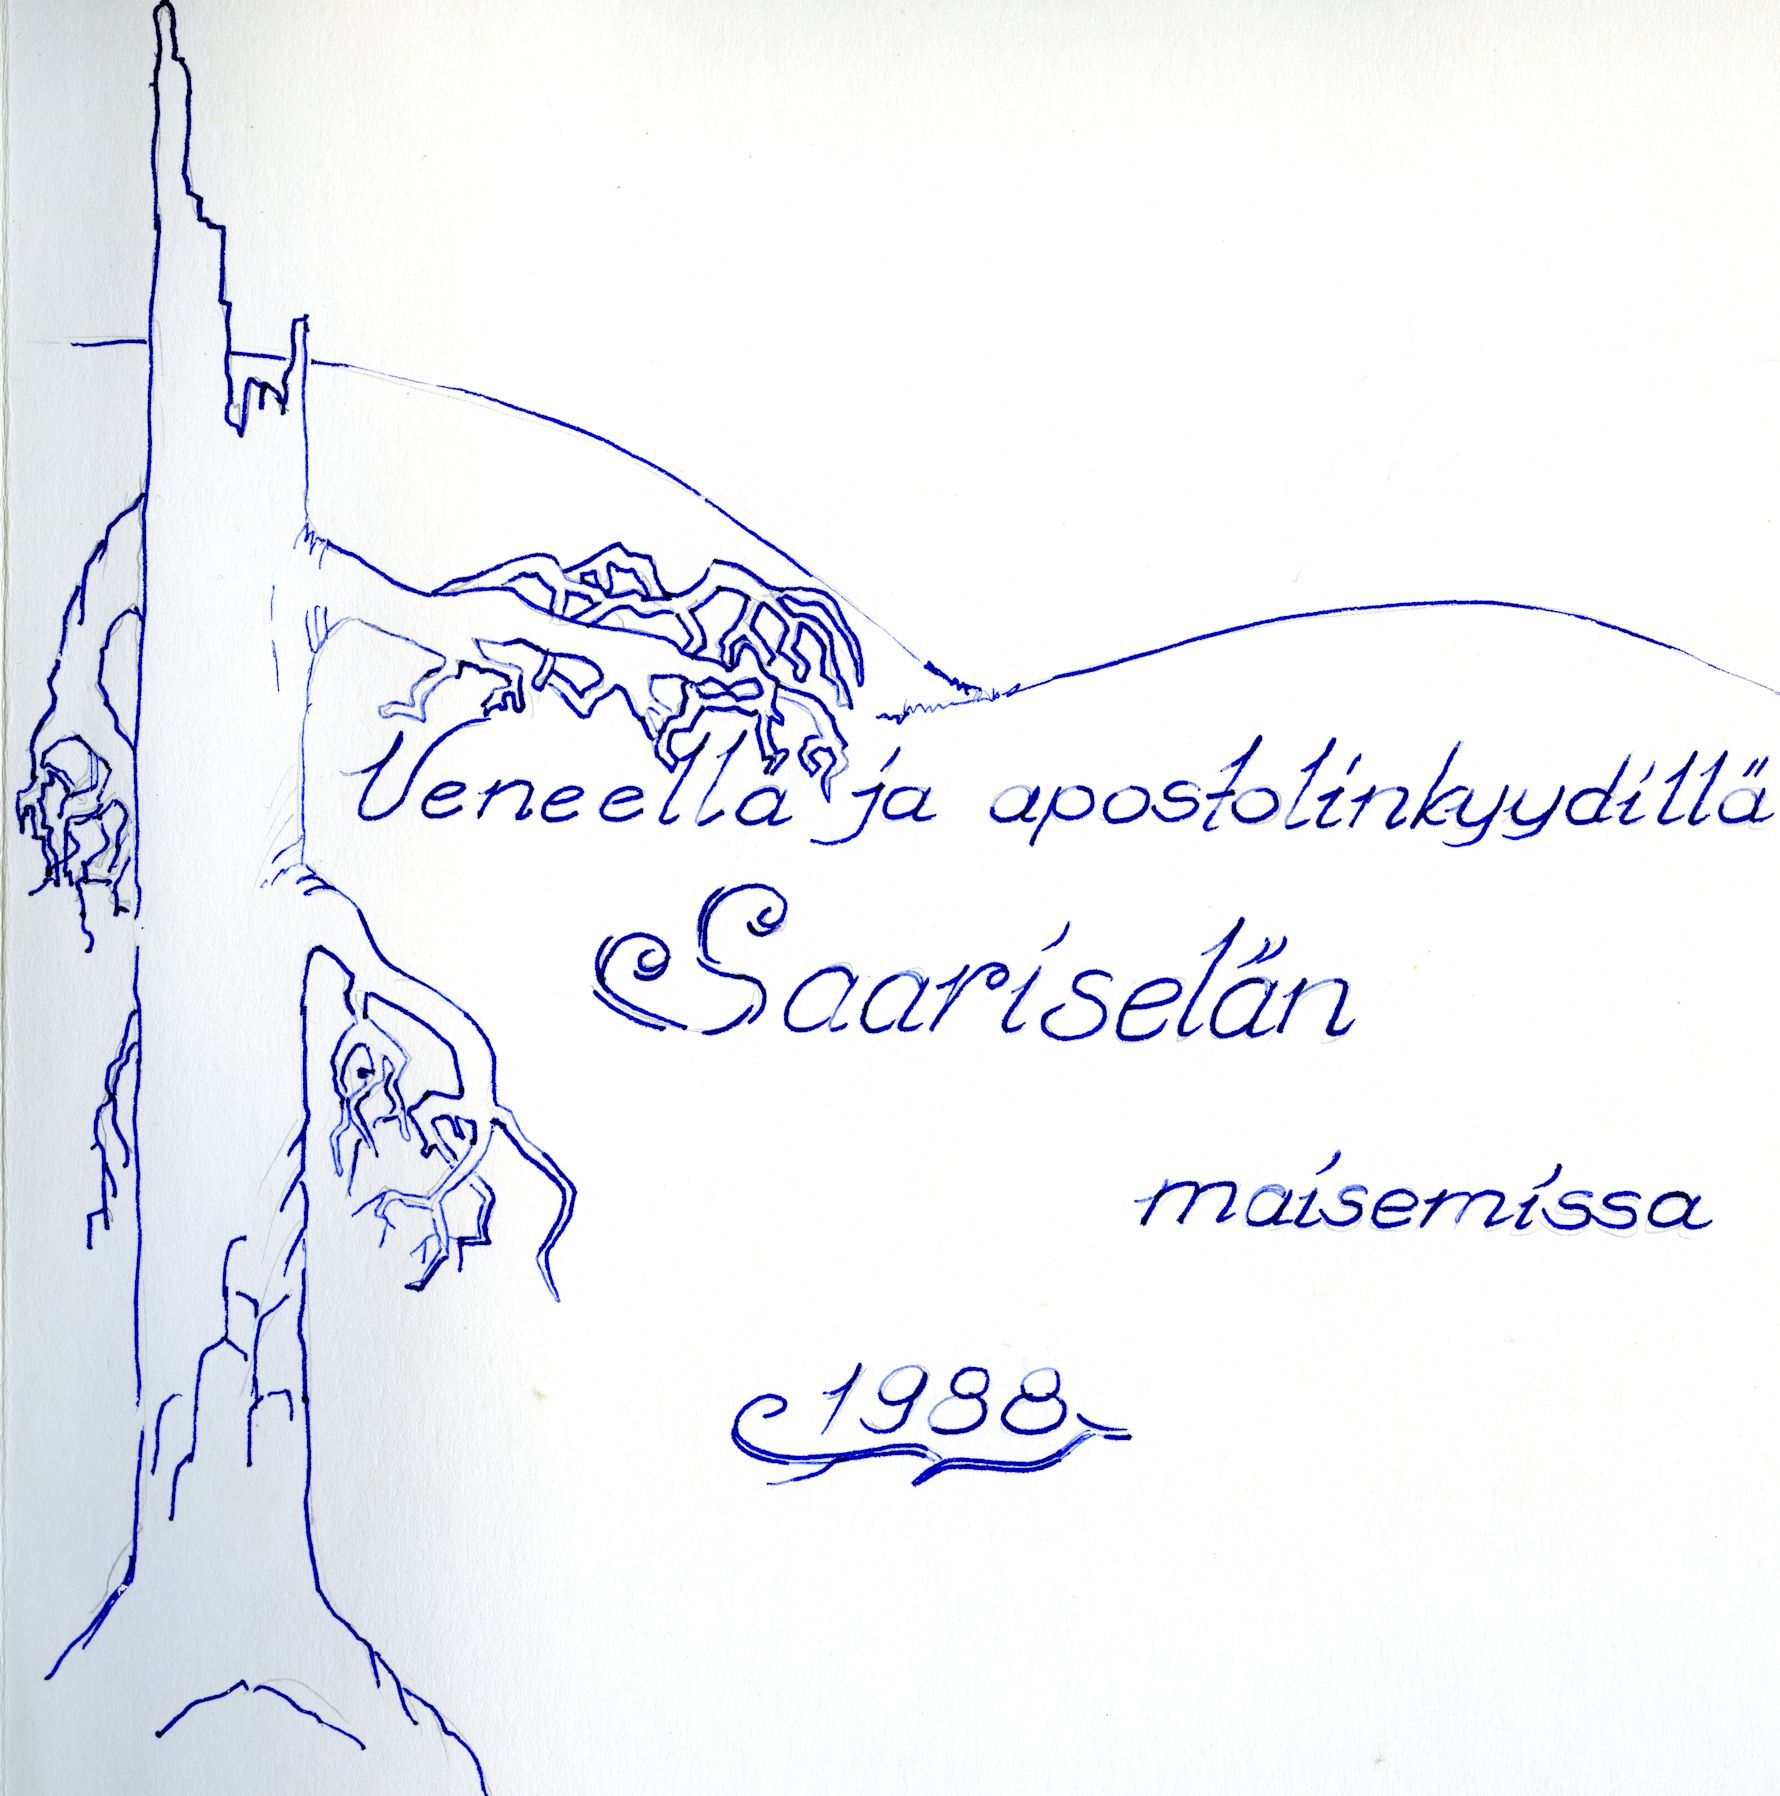 Veneellä ja apostolinkyydillä
Saariselän
maisemissa
1988